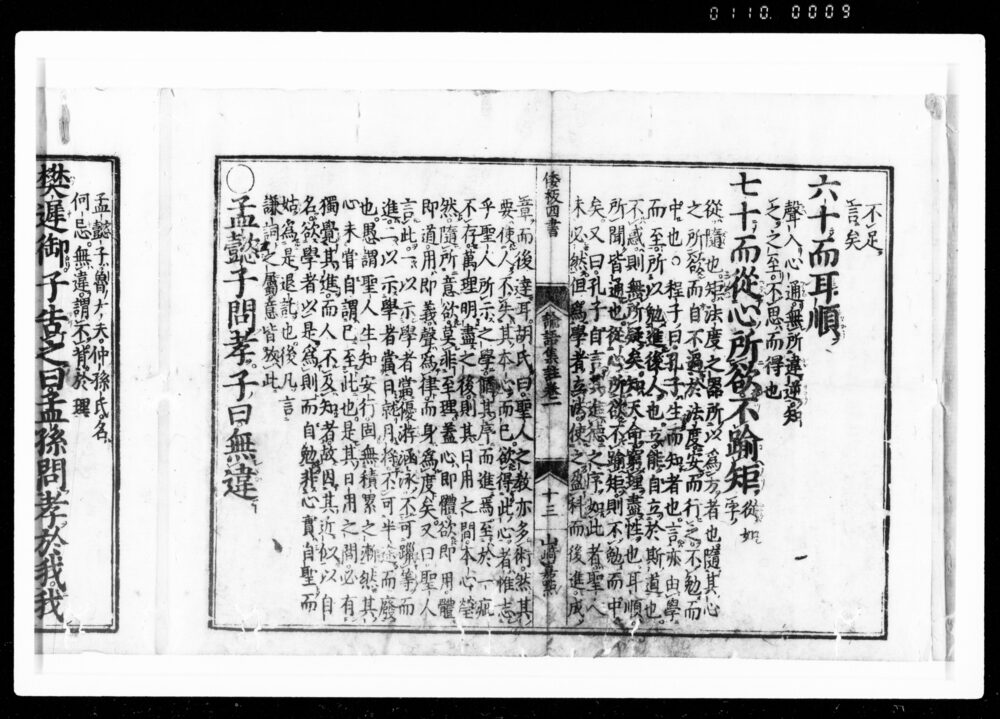 0110. 0009
不足
言矣
六十而耳順
聲入心通無所違逆知
之之至不思而得也
七十而從心所欲不踰矩 從如字
從隨也矩法度之器所以爲方者也隨其心
之所欲而自不過於法度安而行之不勉而
中也○程子曰孔子生而知者也言亦由學
而至所以勉進後人也立能自立於斯道也
不惑則無所疑矣知天命窮理盡性也耳順
所聞皆通也從心所欲不踰矩則不勉而中
矣又曰孔子自言其進德之序如此者聖人
未必然但爲學者立法使之盈科而後進成
倭板四書 論語集註卷一 十三 山崎嘉點
章而後達耳胡氏曰聖人之教亦多術然其
要使人不失其本心而已欲得此心者惟志
乎聖人所示之學循其序而進焉至於一疵
不存萬理明盡之後則其日用之間本心瑩
然隨所意欲莫非至理蓋心即體欲即用體
即道用即義聲爲律而身爲度矣又曰聖人
言此一以示學者當優游涵泳不可躐等而
進二以示學者當日就月將不可半途而廢
也愚謂聖人生知安行固無積累之漸然其
心未嘗自謂已至此也是其日用之間必有
獨覺其進而人不及知者故因其近似以自
名欲學者以是爲則而自勉非心實自聖而
姑爲是退託也後凡言
謙詞之屬意皆放此
○孟懿子問孝子曰無違
孟懿子魯大夫仲孫氏名
何忌無違謂不背於理
樊遲御子告之曰孟孫問孝於我我